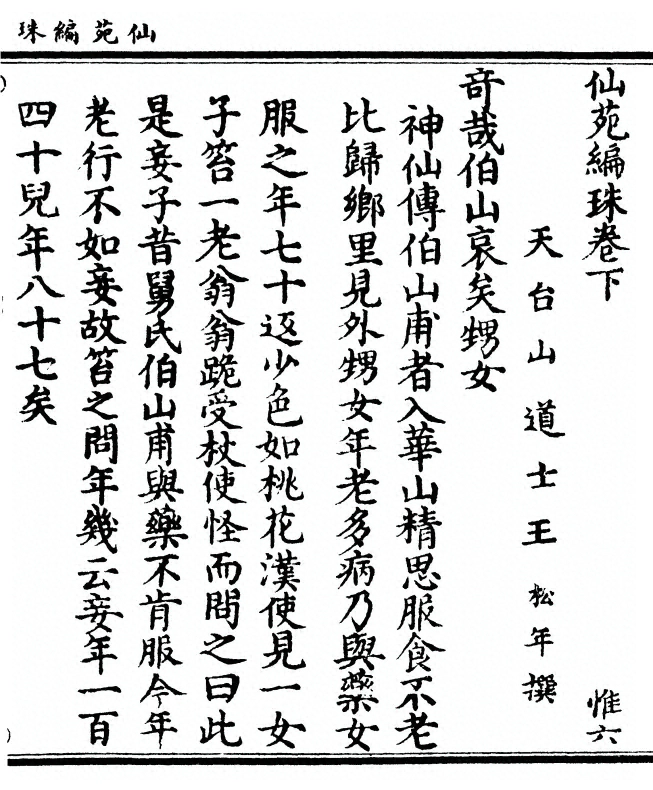 仙苑編珠
仙苑編珠卷下
惟六
天台山道士王松年撰
奇哉伯山哀矣甥女
神仙傳伯山甫者入華山精思服食不老
比歸鄉里見外甥女年老多病乃與藥女
服之年七十返少色如桃花漢使見一女
子笞一老翁翁跪受杖使怪而問之曰此
是妾子昔舅氏伯山甫與藥不肯服今年
老行不如妾故笞之問年幾云妾年一百
四十兒年八十七矣